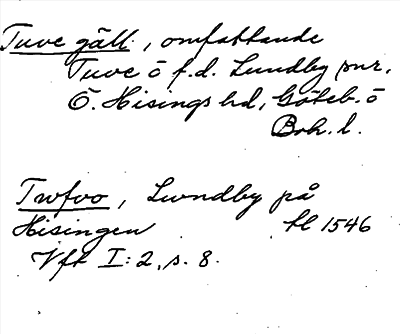 Tuve gäll, omfattande
Tuve o f.d. Lundby snr,
Ö. Hisings hd, Göteb. o
Boh. l.
Twfvo, Lwndby på
Hisingen hl 1546
Vfr I:2, s. 8.